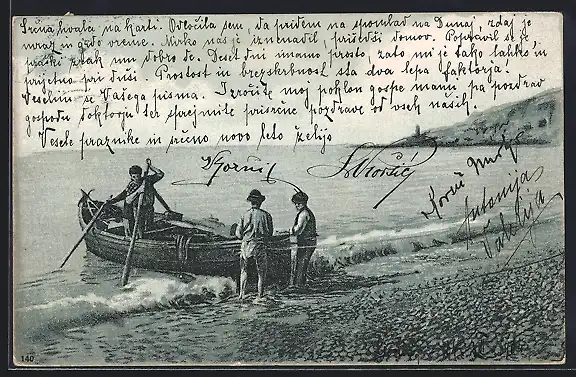 Srčna hvala na karti. Odločila sem, da pridem na spomlad na Dunaj, zdaj je
mraz in grdo vreme. Mirko nas je iznenadil prišedši domov. Popravil se je
praški zrak mu dobro de. Deset dni imamo prosto, zato mi je tako lahko in
prijetno pri duši. Prostost in brezskrbnost sta dva lepa faktorja.
Veselim se Vašega pisma. Izročite moj poklon gospe mami, pa pozdrav
gospodu doktorju ter sprejmite prisrčne pozdrave od vseh naših.
Vesele praznike in srečno novo leto želijo
Antonija
Valerija
140